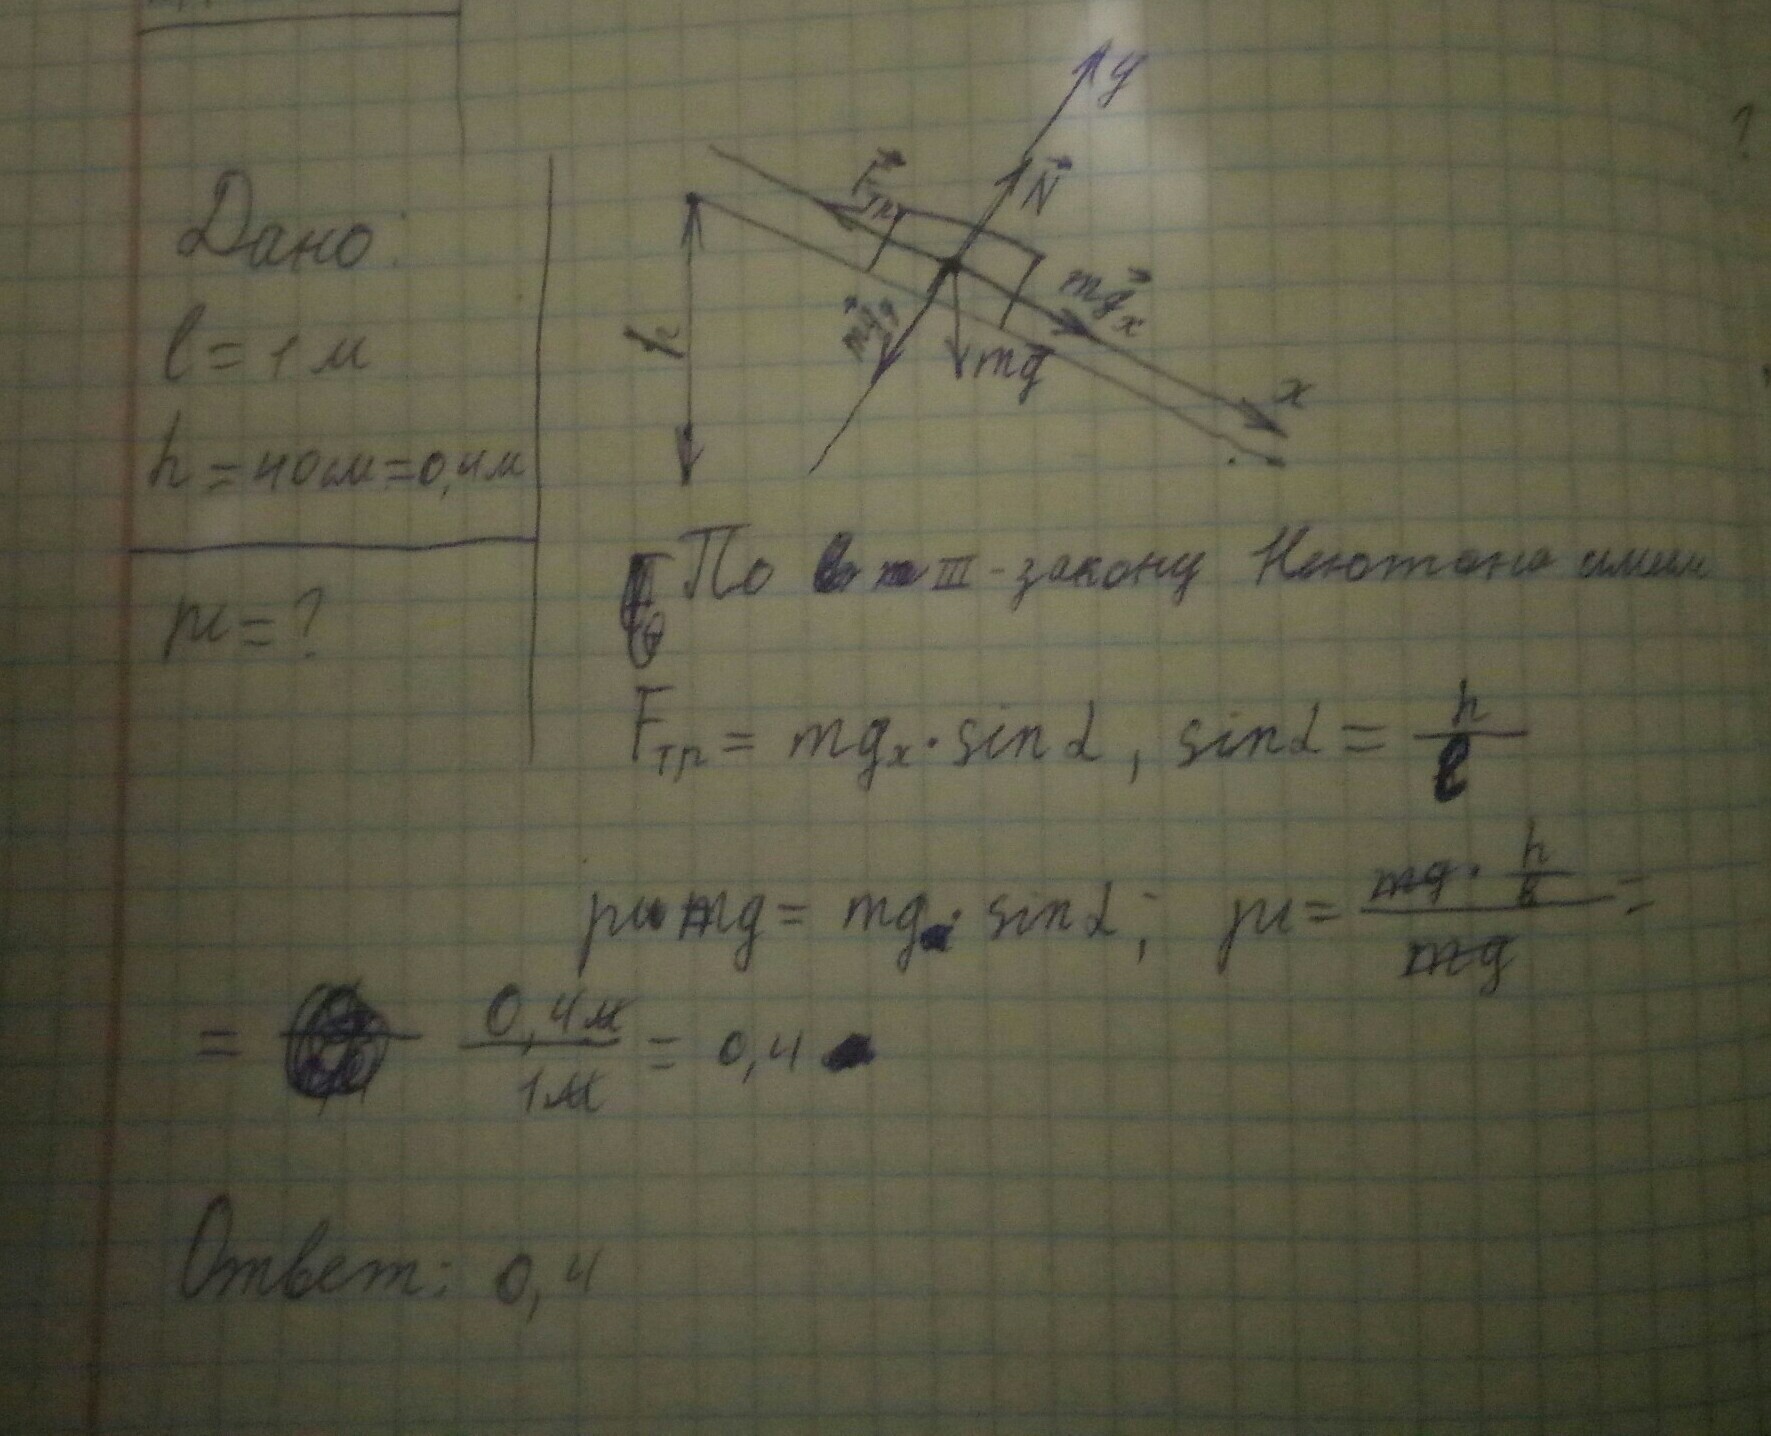 Дано:
l = 1 м
h = 40 см = 0,4 м
μ = ?
y
N
Fтр
mgx
mgy
mg
h
x
По III - закону Ньютона имеем
Fтр = mgx · sin α, sin α = h/l
μ mg = mg · sin α; μ = mg · h/l / mg =
= 0,4 м / 1 м = 0,4
Ответ: 0,4
?